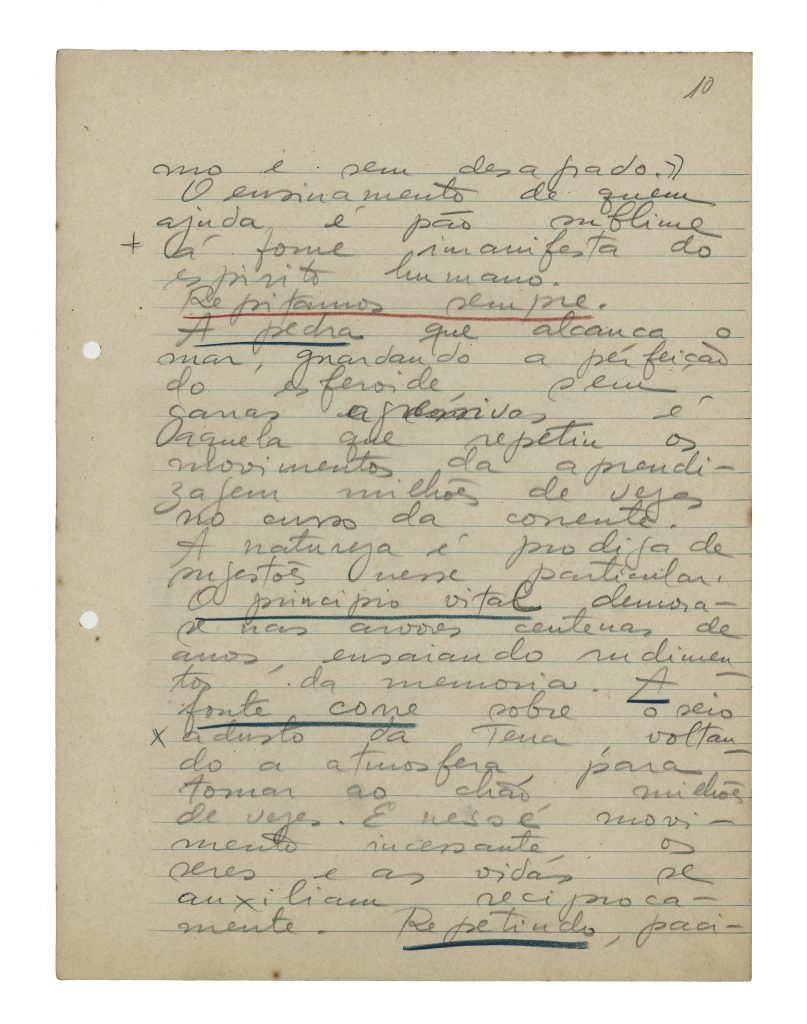 10
mo é sem desagrado.»
O ensinamento de quem
ajuda, é pão sublime
+ á fome imanifesta do
espirito humano.
Repitamos sempre.
A pedra que alcança o
mar, guardando a perfeição
do esferoide, sem
garras agressivas é
daquela que repetiu os
movimentos da aprendi-
zagem milhões de vezes
no curso da corrente.
A natureza é prodiga de
sujestões nesse particular.
O principio vital demora-
se nas arvores centenas de
anos, ensaiando rudimen-
tos da memoria. A
fonte corre sobre o seio
x adusto da Terra voltan-
do a atmosfera, para
tornar ao chão milhões
de vezes. E nesse movi-
mento incessante, os
seres e as vidas se
auxiliam reciproca-
mente. Repetindo, paci-